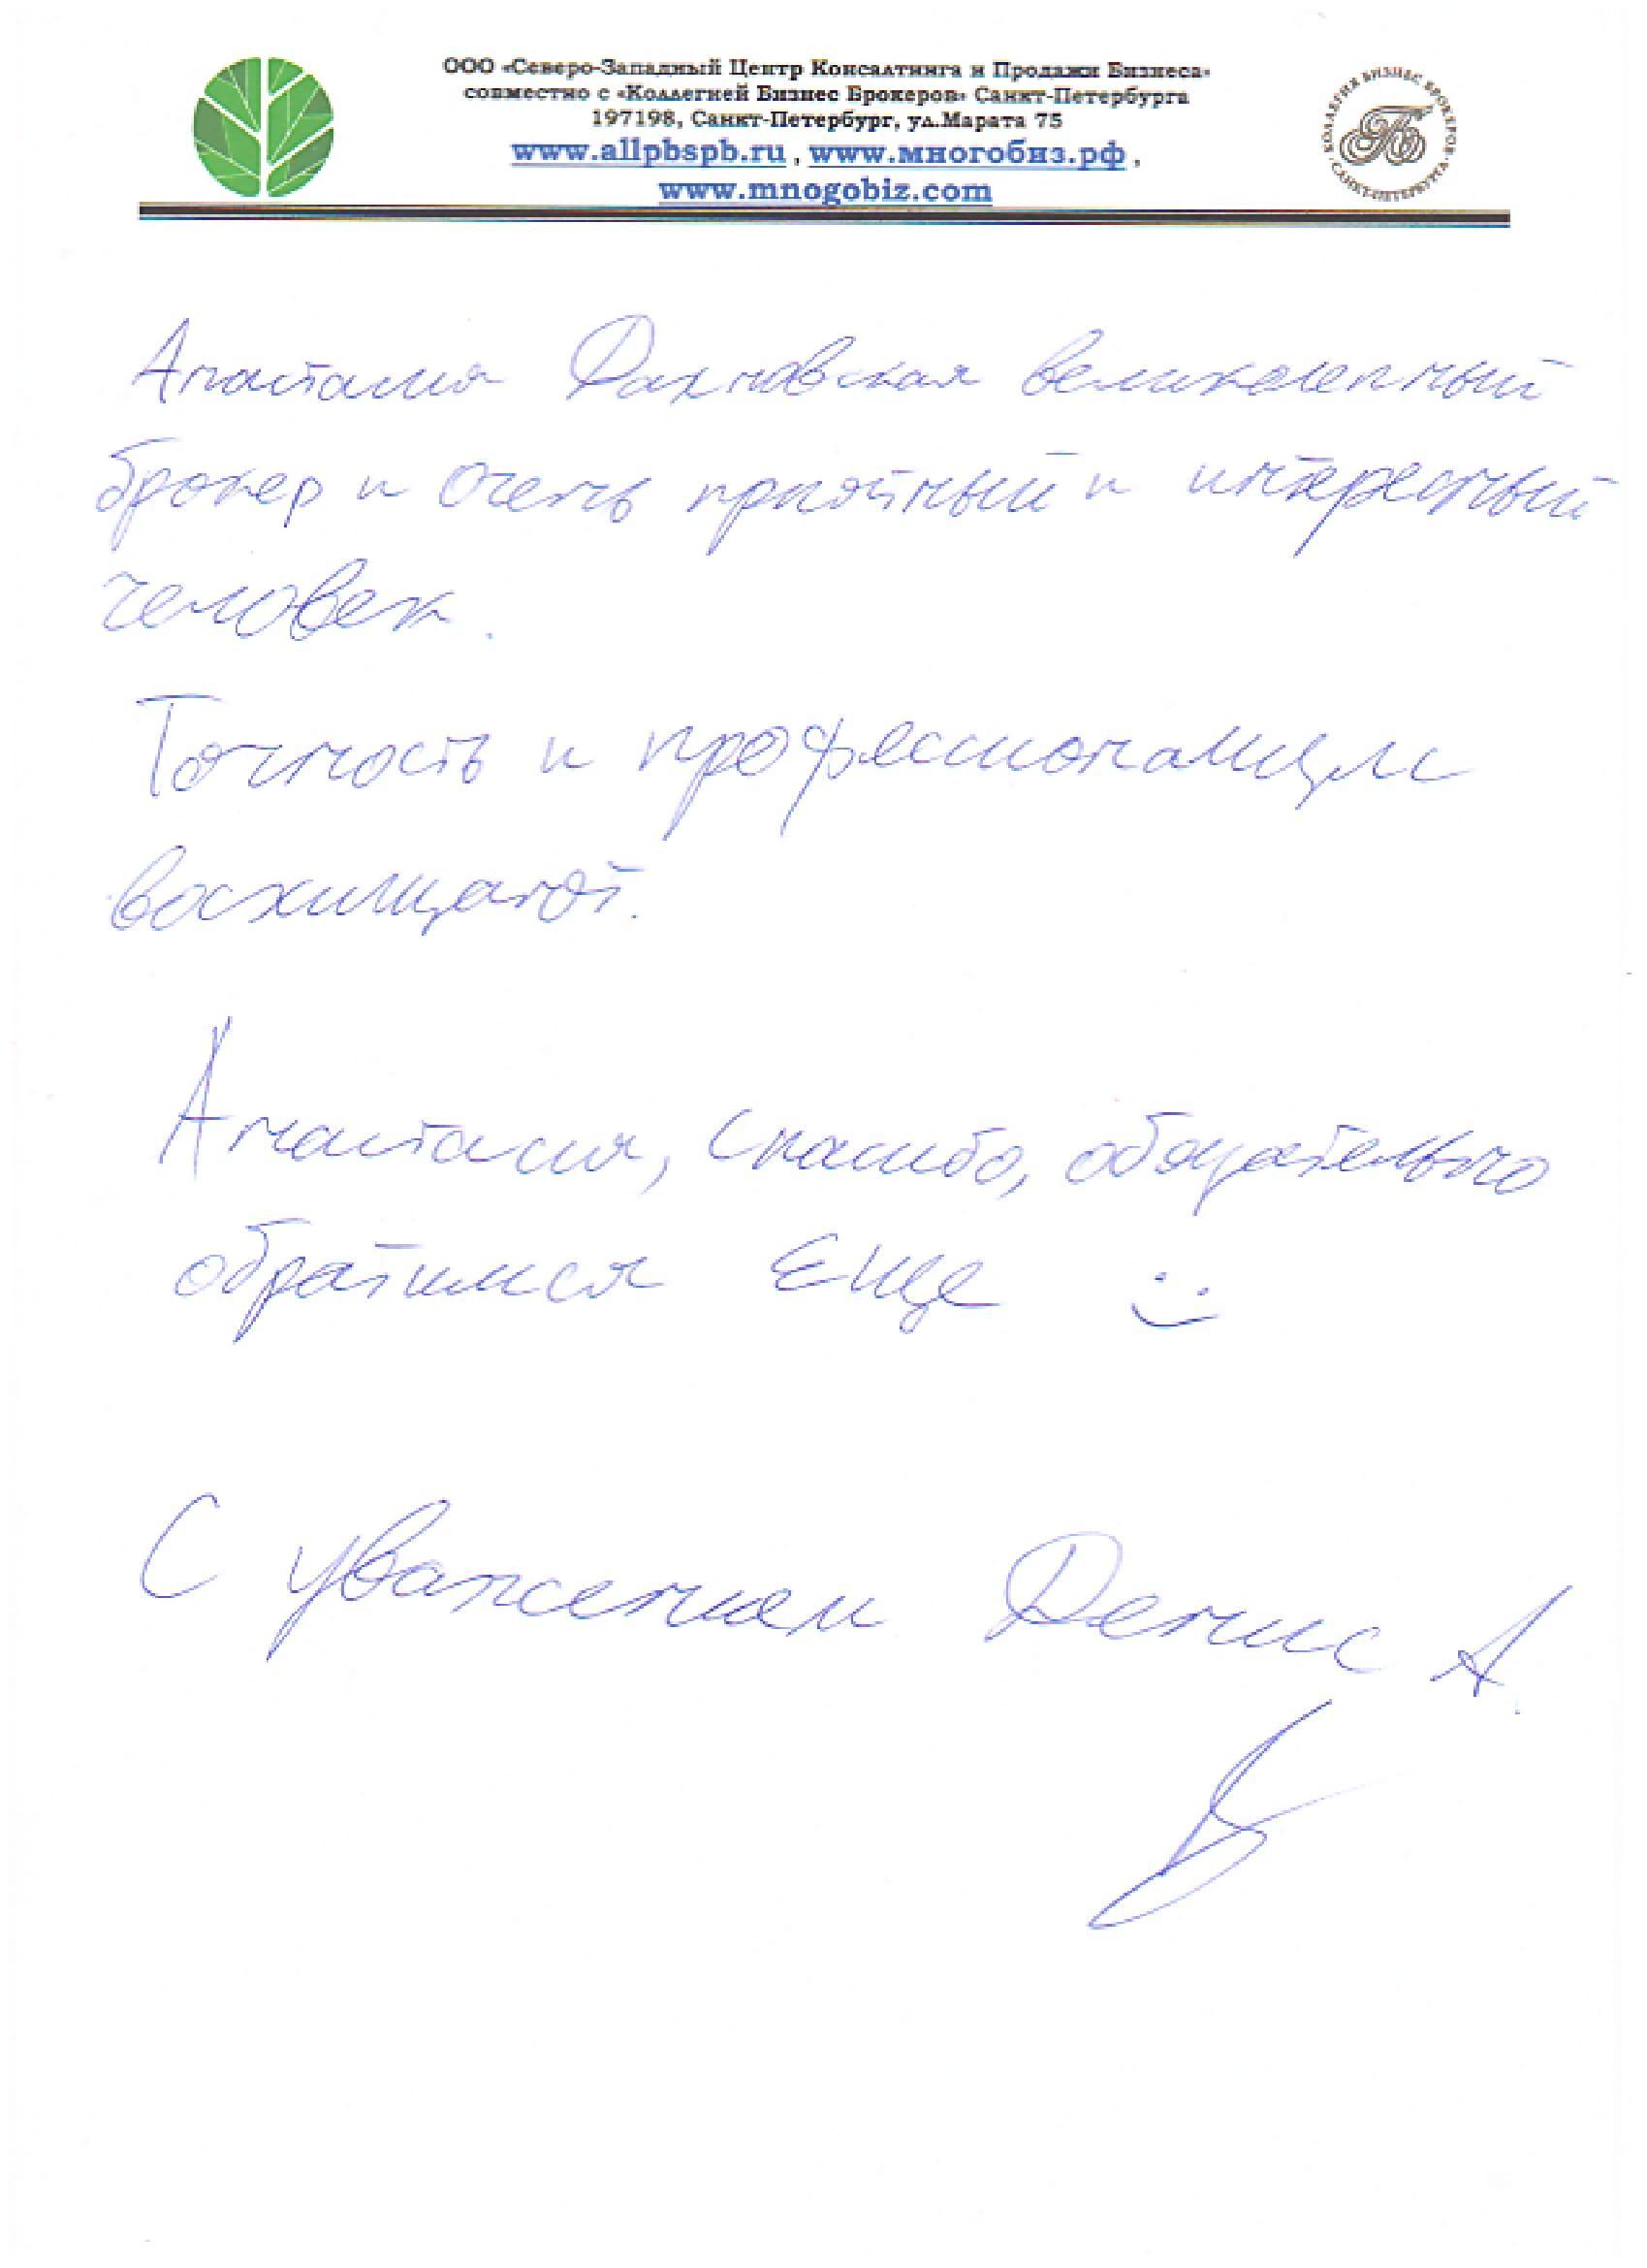 ООО «Северо-Западный Центр Консалтинга и Продажи Бизнеса»
совместно с «Коллегией Бизнес Брокеров» Санкт-Петербурга
197198, Санкт-Петербург, ул.Марата 75
www.allpbspb.ru , www.многобиз.рф ,
www.mnogobiz.com
КОЛЛЕГИЯ БИЗНЕС БРОКЕРОВ
САНКТ-ПЕТЕРБУРГА
Анастасия Дахновская великолепный
брокер и очень приятный и интересный
человек.
Точность и профессионализм
восхищают.
Анастасия, спасибо, обязательно
обратимся еще :)
С уважением Денис А.